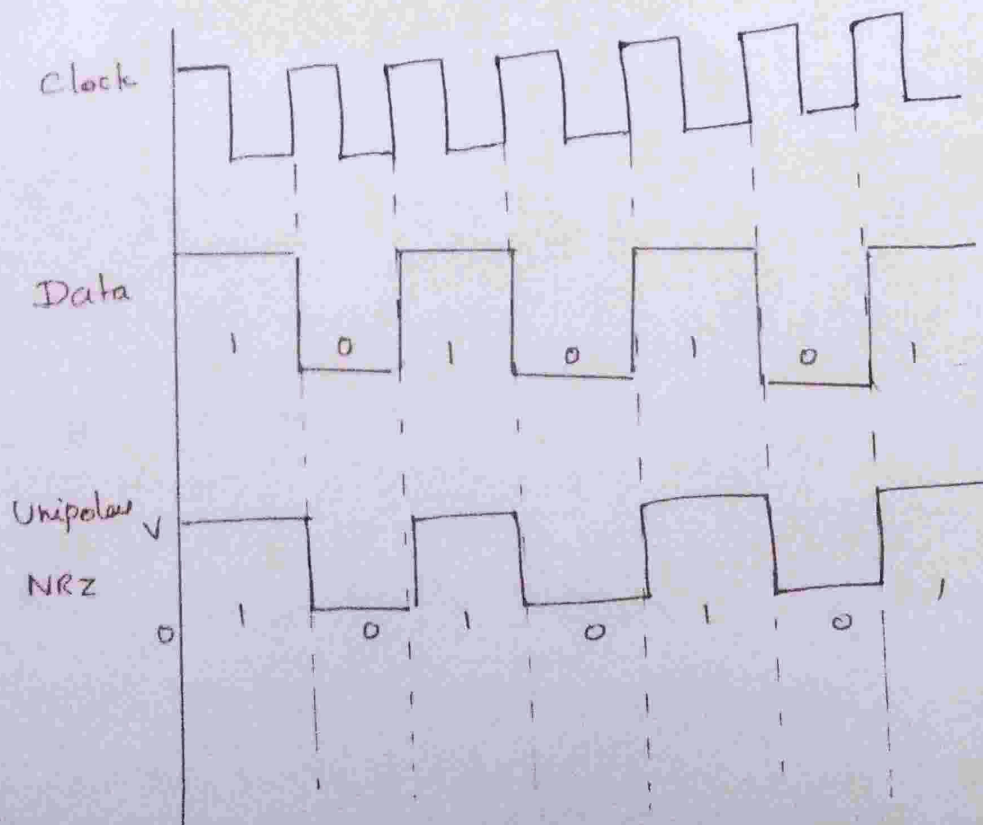 Clock
Data
1 0 1 0 1 0 1
Unipolar V
NRZ
0 1 0 1 0 1 0 1